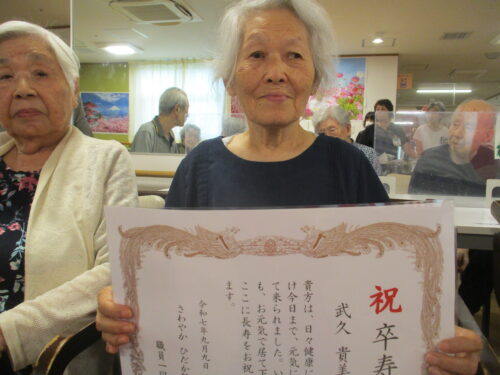 祝 卒寿
武久 貴美
貴方は、日々健康に
け今日まで、元気に
て来られました。い
も、お元気で居て下
ここに長寿をお祝
ます。
令和七年九月九日
さわやか ひだか
職員一